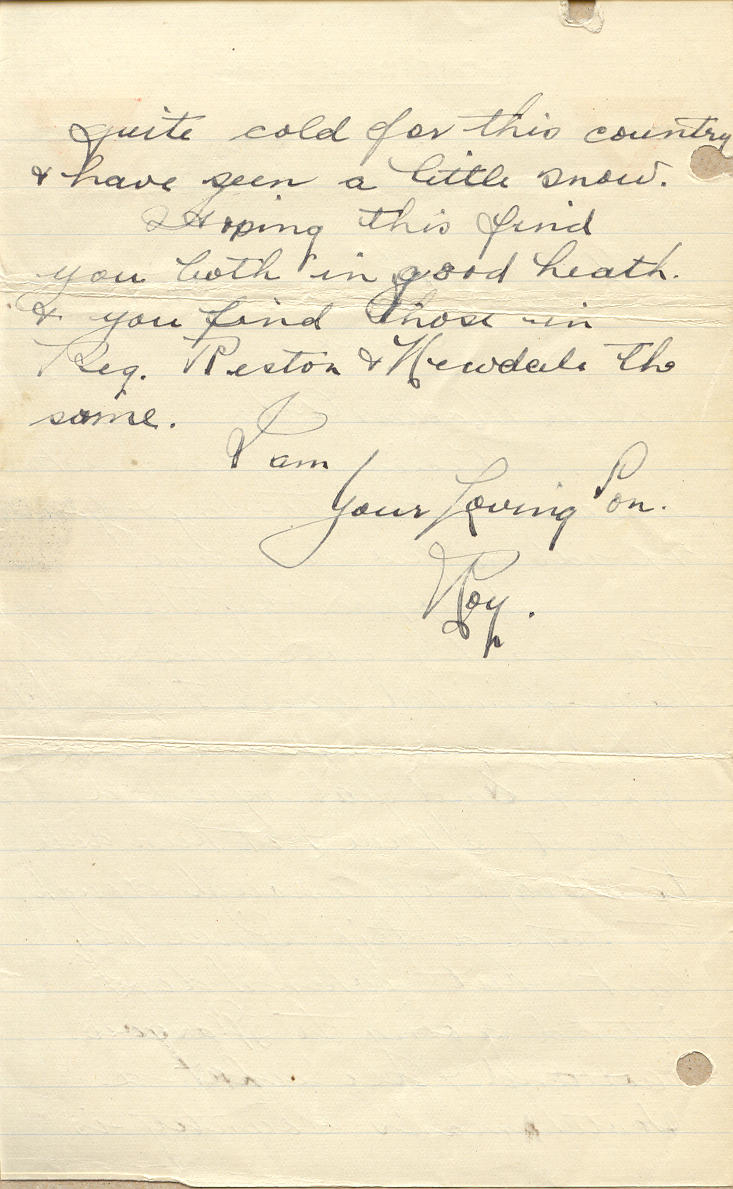 quite cold for this country
& have seen a little snow.
Hoping this find
you both in good heath.
& you find those in
Reg. Reston & Newdale the
same.
I am
Your Loving Son.
Roy.